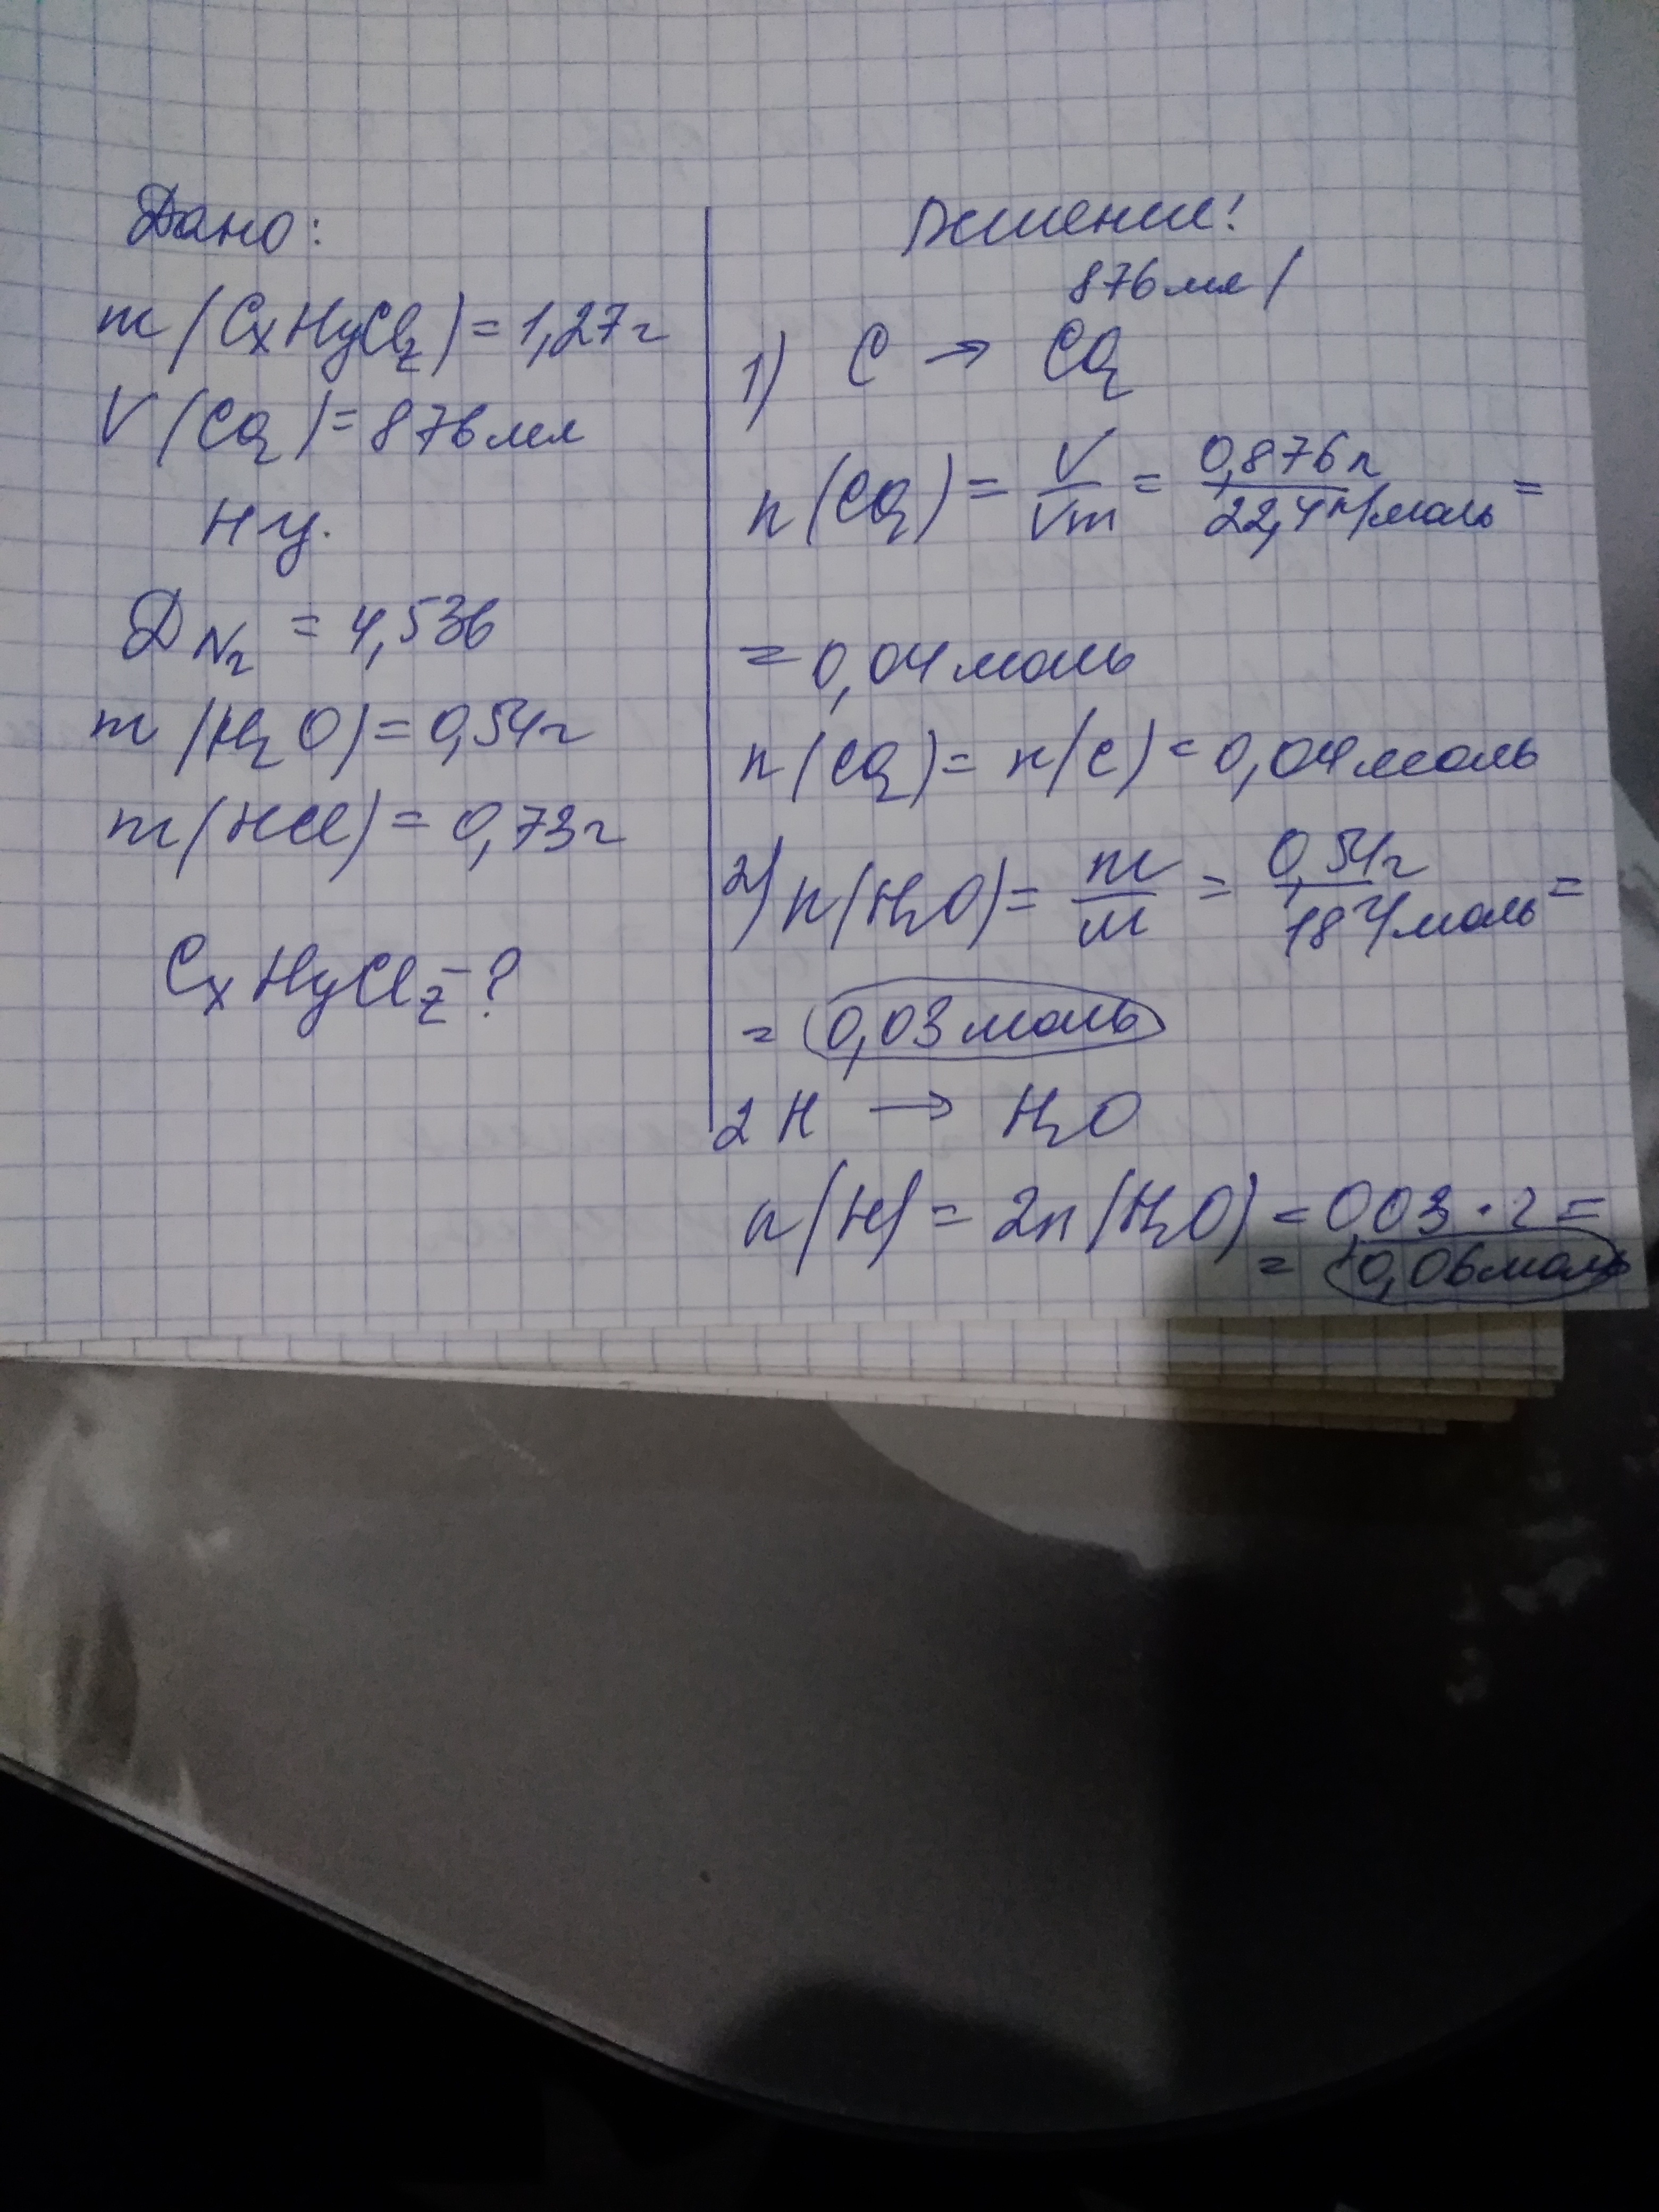 Дано:
m (CxHyClz) = 1,27г
V (CO2) = 876мл
н у.
D N2 = 4,536
m (H2O) = 0,54г
m (HCl) = 0,73г
CxHyClz - ?
Решение!
876мл /
1) C → CO2
n (CO2) = V/Vm = 0,876л/22,4 л/моль =
= 0,04 моль
n (CO2) = n(C) = 0,04 моль
2) n (H2O) = m/M = 0,54г/18 г/моль =
= 0,03 моль
2 H → H2O
n (H) = 2n (H2O) = 0,03 · 2 =
= 0,06 моль